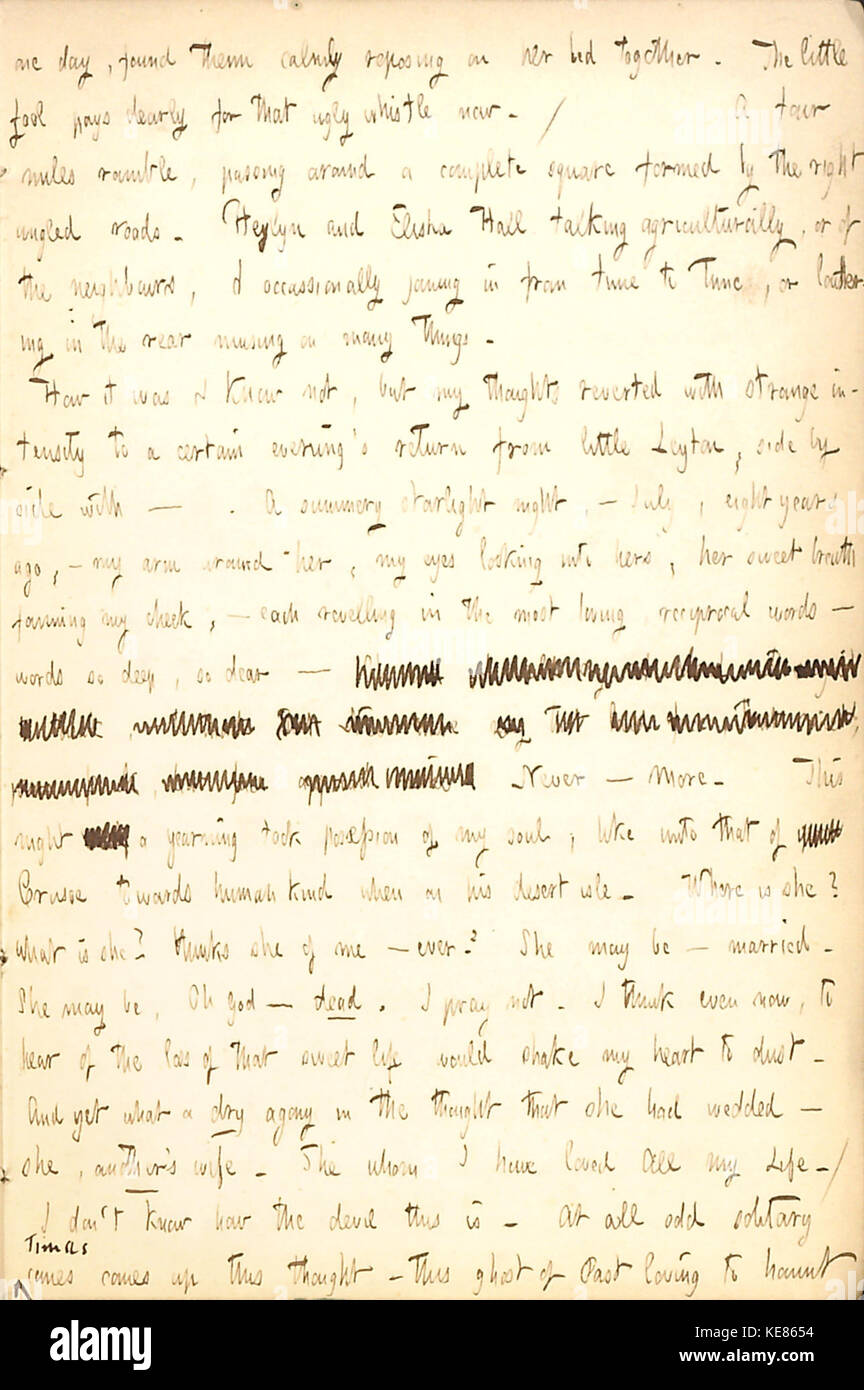 one day, found them calmly reposing on her bed together. The little
fool pays dearly for that ugly whistle now. / A four
miles ramble, passing around a complete square formed by the right
angled roads. Heylyn and Elisha Hall talking agriculturally, or of
the neighbours, I occassionally joining in from time to time, or loiter-
ing in the rear musing on many things.
How it was I know not, but my thoughts reverted with strange in-
tensity to a certain evening's return from little Leyton, side by
side with — . A summery starlight night, — July, eight years
ago, — my arm around her, my eyes looking into hers, her sweet breath
fanning my cheek, — each revelling in the most loving reciprocal words —
words so deep, so dear —
Never — more. This
night a yearning took possession of my soul, like unto that of
Crusoe towards human kind when on his desert isle. Where is she?
what is she? thinks she of me — ever? She may be — married.
She may be, Oh God — dead. I pray not. I think even now, to
hear of the loss of that sweet life would shake my heart to dust.
And yet what a dry agony in the thought that she had wedded —
she, another's wife. She whom I have loved all my Life. /
I don't know how the devil this is. At all odd solitary
Times
comes up this thought — this ghost of Past loving to haunt
alamy
Image ID: KE8654
www.alamy.com